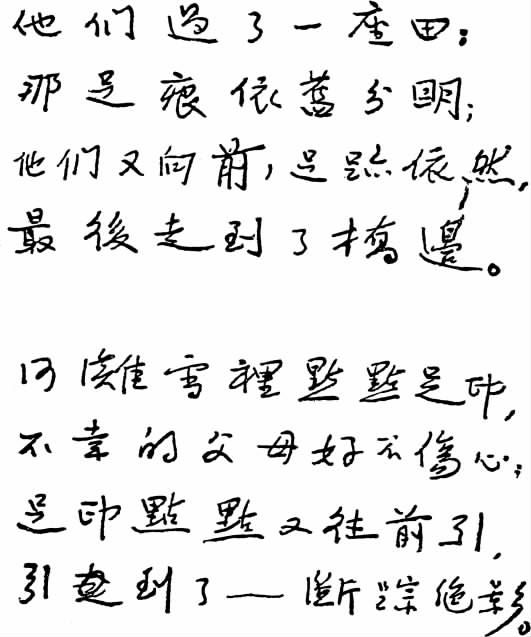 他们過了一座田；
那足痕依舊分明；
他们又向前，足踪依然，
最後走到了橋邊。
河灘雪裡點點足印，
不幸的父母好不傷心；
足印點點又往前引，
引走到了——斷踪絶影。